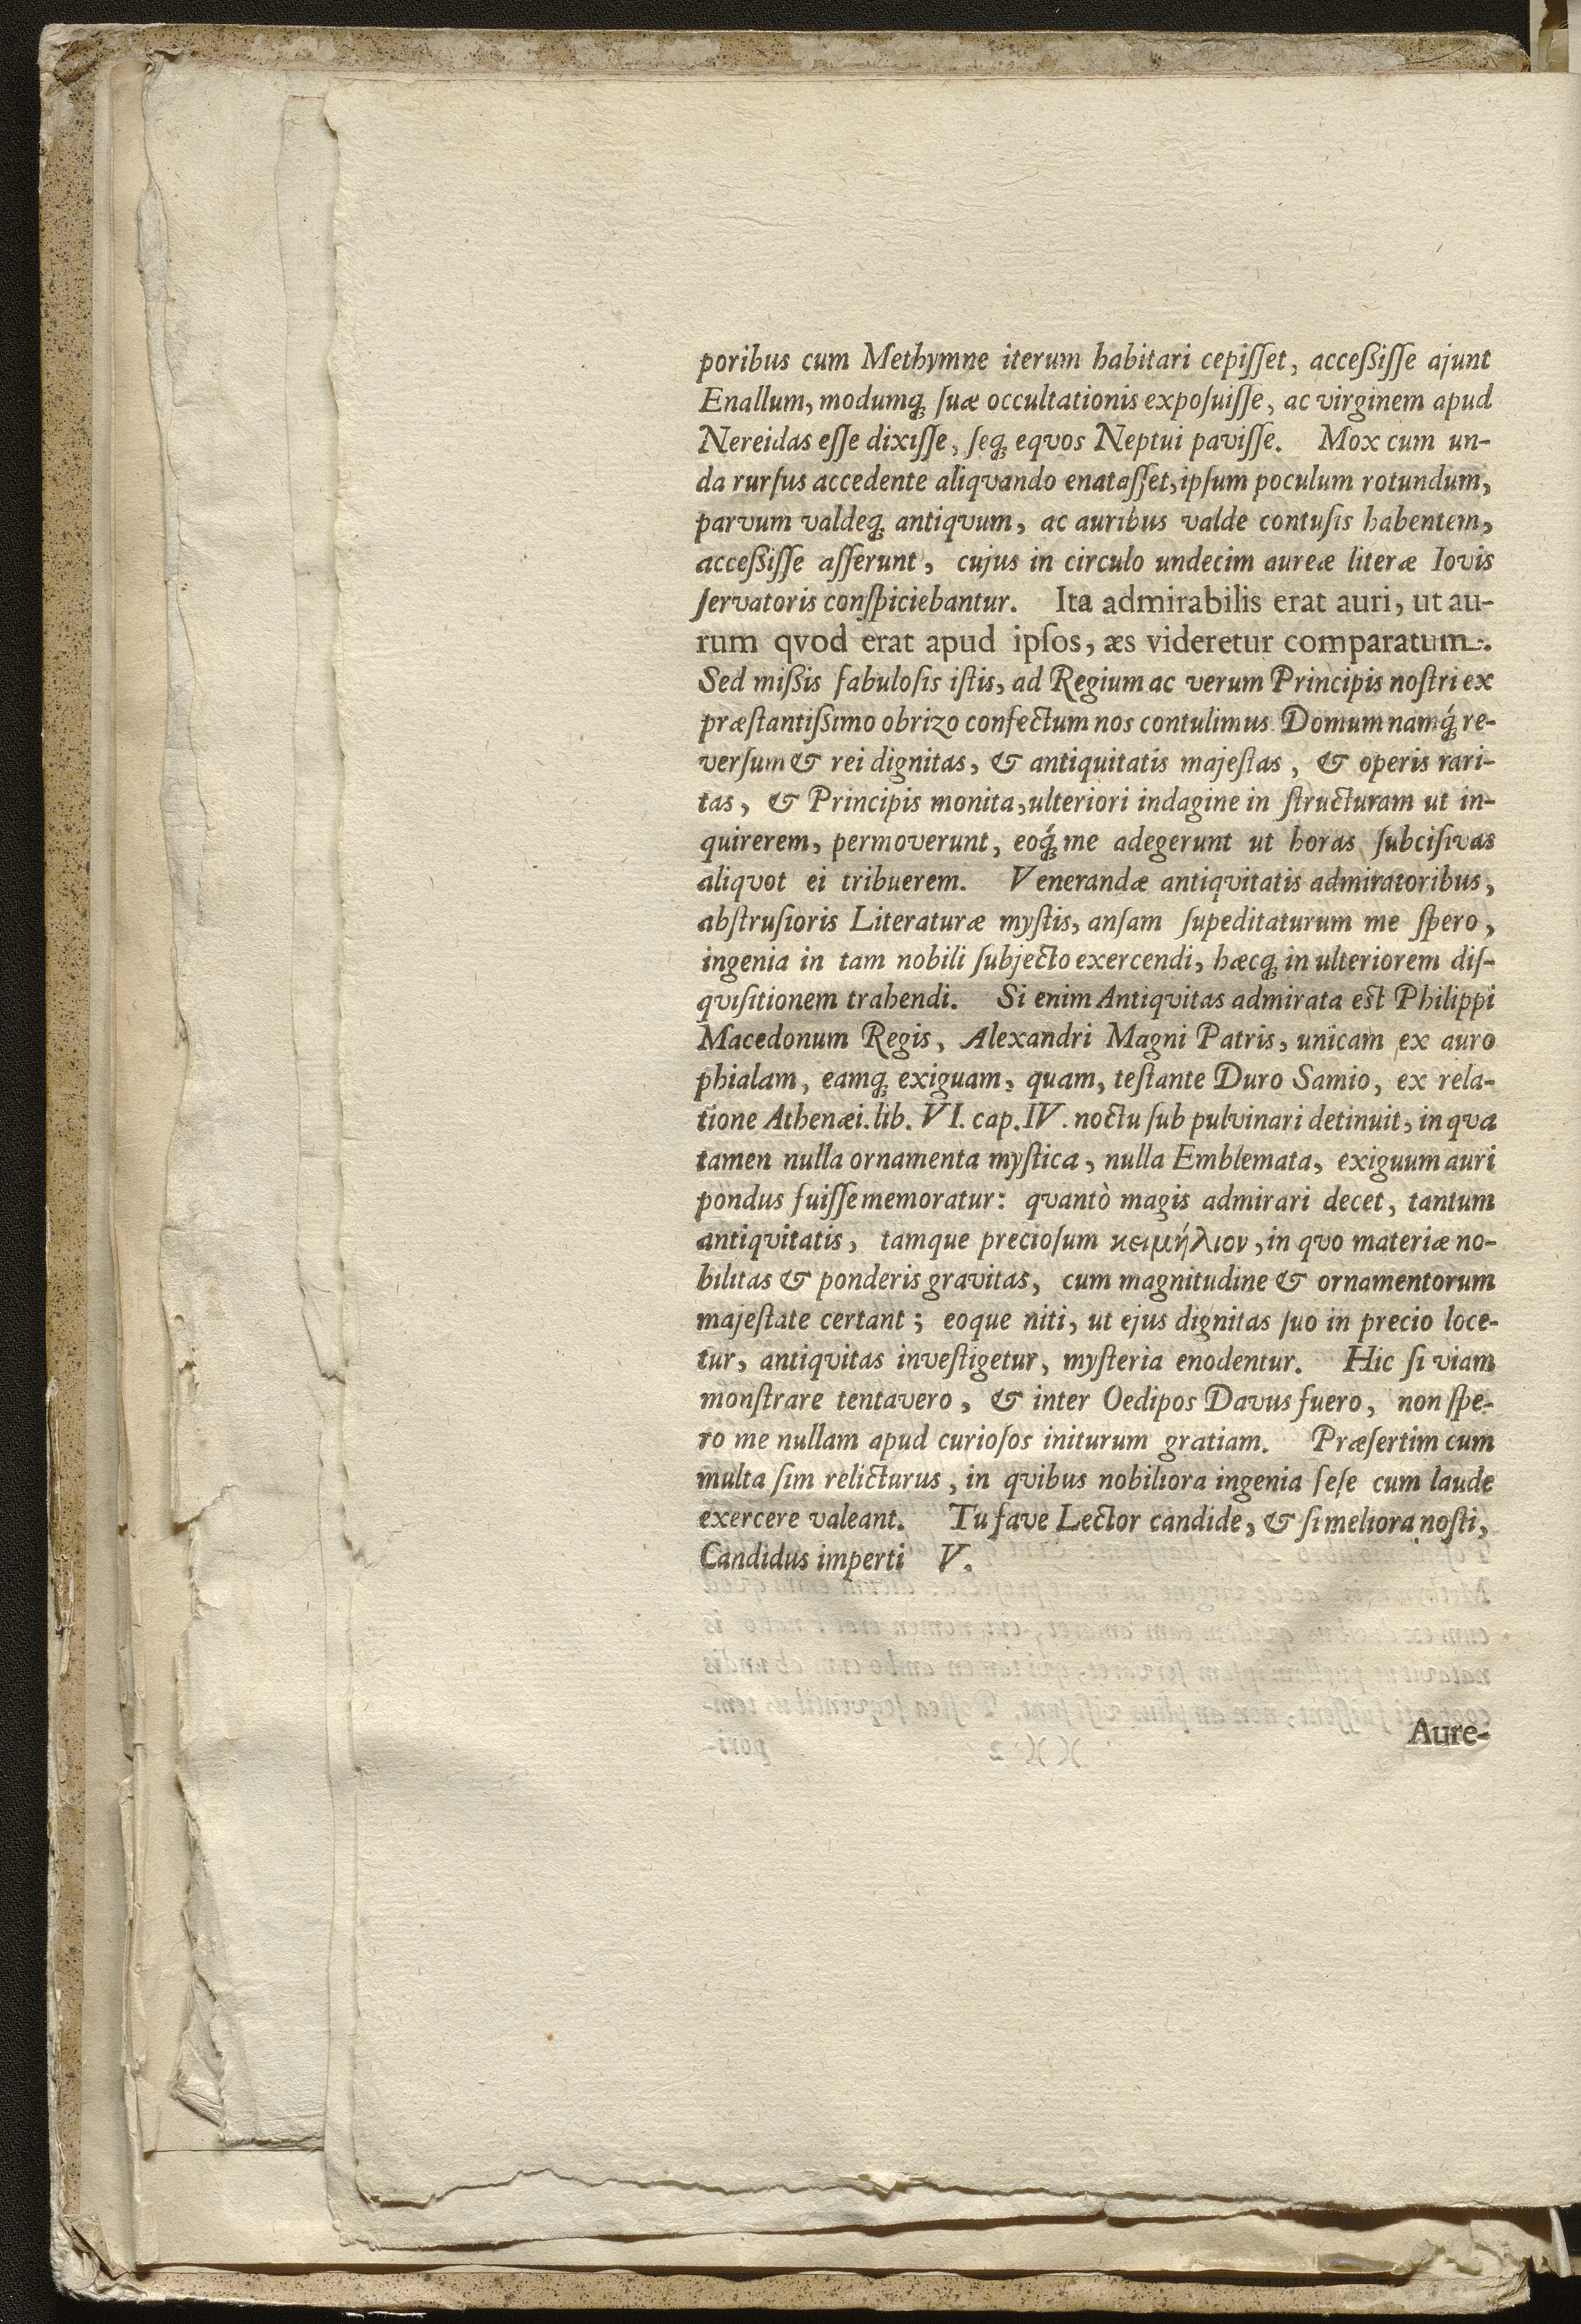 poribus cum Methymne iterum habitari cepiſſet, acceßiſſe ajunt
Enallum, modumq́; ſuæ occultationis expoſuiſſe, ac virginem apud
Nereidas eſſe dixiſſe, ſeq́; eqvos Neptui paviſſe. Mox cum un-
da rurſus accedente aliqvando enataſſet, ipſum poculum rotundum,
parvum valdeq́; antiqvum, ac auribus valde contuſis habentem,
acceßiſſe aſſerunt, cujus in circulo undecim aureæ literæ Iovis
ſervatoris conſpiciebantur. Ita admirabilis erat auri, ut au-
rum qvod erat apud ipſos, æs videretur comparatum.
Sed mißis fabuloſis iſtis, ad Regium ac verum Principis noſtri ex
præſtantißimo obrizo confectum nos contulimus. Domum namq́; re-
verſum & rei dignitas, & antiquitatis majeſtas, & operis rari-
tas, & Principis monita, ulteriori indagine in ſtructuram ut in-
quirerem, permoverunt, eoq́; me adegerunt ut horas ſubciſivas
aliqvot ei tribuerem. Venerandæ antiqvitatis admiratoribus,
abſtruſioris Literaturæ myſtis, anſam ſupeditaturum me ſpero,
ingenia in tam nobili ſubjecto exercendi, hæcq́; in ulteriorem diſ-
qviſitionem trahendi. Si enim Antiqvitas admirata eſt Philippi
Macedonum Regis, Alexandri Magni Patris, unicam ex auro
phialam, eamq́; exiguam, quam, teſtante Duro Samio, ex rela-
tione Athenæi. lib. VI. cap. IV. noctu ſub pulvinari detinuit, in qva
tamen nulla ornamenta myſtica, nulla Emblemata, exiguum auri
pondus fuiſſe memoratur: qvantò magis admirari decet, tantum
antiqvitatis, tamque precioſum κειμήλιον, in qvo materiæ no-
bilitas & ponderis gravitas, cum magnitudine & ornamentorum
majeſtate certant; eoque niti, ut ejus dignitas ſuo in precio loce-
tur, antiqvitas inveſtigetur, myſteria enodentur. Hic ſi viam
monſtrare tentavero, & inter Oedipos Davus fuero, non ſpe-
ro me nullam apud curioſos initurum gratiam. Præſertim cum
multa ſim relicturus, in qvibus nobiliora ingenia ſeſe cum laude
exercere valeant. Tu fave Lector candide, & ſi meliora noſti,
Candidus imperti V.
Aure-